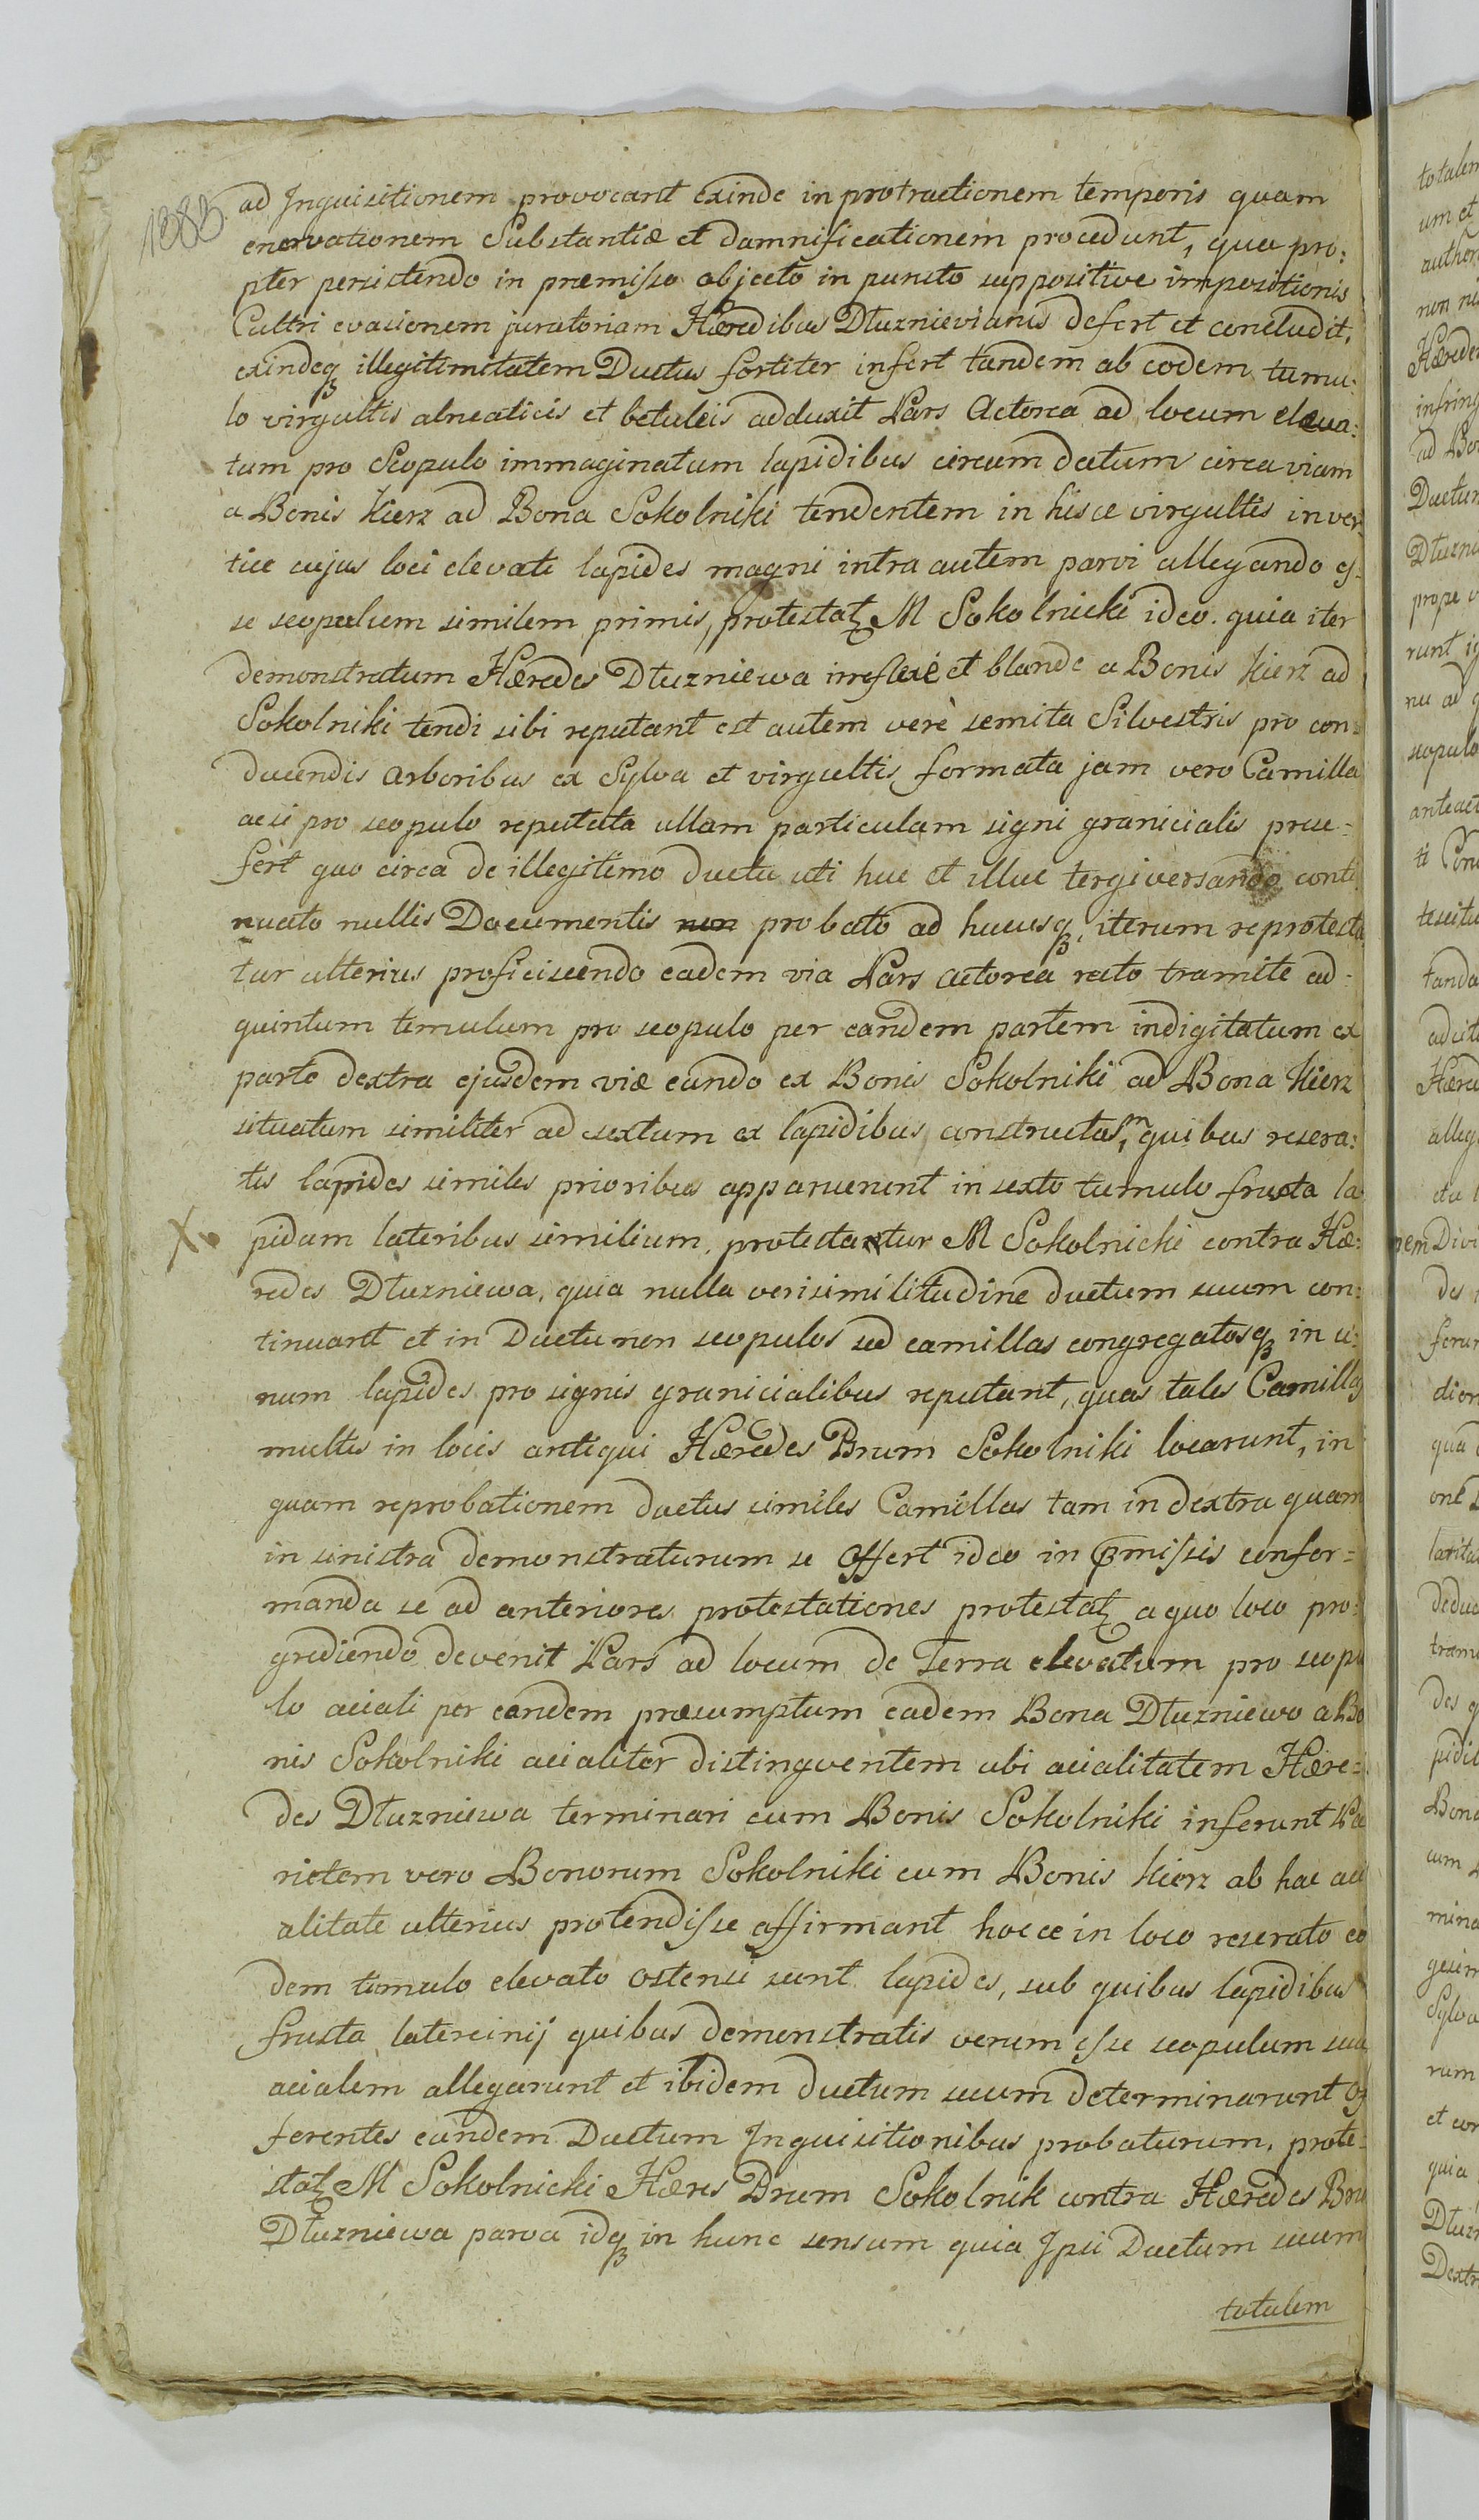 1383.
ad Inquisitionem provocant exinde in protractionem temporis quam
enervationem Substantiæ et damnificationem procedunt, qua pro:
pter persistendo in præmisso objecto in puncto suppositive impositionis
Cultri evasionem juratoriam Hæredibus Dłuznievianis defert et concludit,
exindeqꝫ illegitimitatem Ductus fortiter infert tandem ab eodem tumu:
lo virgultis alneaticis et betuleis adduxit Pars Actorea ad locum eleva:
tum pro Scopulo immaginatum lapidibus circum datum circa viam
a Bonis Kierz ad Bona Sokolniki tendentem in hisce virgultis in ver
tice cujus loci elevati lapides magni intra autem parvi allegando es:
se scopulum similem primis, protestatꝫ M Sokolnicki ideo. quia iter
demonstratum Hæredes Dłuzniewa irreflexè et blande a Bonis Kierz ad
Sokolniki tendi sibi reputant est autem verè semita Silvestris pro con=
ducendis arboribus ex Sylva et virgultis formata jam vero Camilla
acsi pro scopulo reputata ullam particulam signi granicialis præse=
fert quo circa de illegitimo ductu uti huc et illuc tergiversando conti
nuato nullis Documentis non probato ad hucusqꝫ, iterum reprotesta
tur ulterius proficiscendo eadem via Pars actorea recto tramite ad=
quintum temulum pro scopulo per eandem partem indigitatum ex
parte dextra ejusdem viæ eundo ex Bonis Sokolniki ad Bona Kierz
situatum similiter ad sextum ex lapidibus constructum, quibus resera:
tis lapides similes prioribus apparuerunt in sexto tumulo frusta la
X. pidum lateribus similium, protestatur M Sokolnicki contra Hæ:
redes Dłuzniewa, quia nulla verisimilitudine ductum suum con:
tinuant et in Ductu non scopulos sed camillas congregatosqꝫ in u:
num lapides pro signis granicialibus reputant, quas tales Camillas
multis in locis antiqui Hæredes Bnum Sokolniki locarunt, in
quam reprobationem ductus similes Camillas tam in dextra quam
in sinistra demonstraturum se offert ideo in præmissis confor=
manda se ad anteriores protestationes protestatꝫ a quo loco pro:
grediendo devenit Pars ad locum de Terra elevatum pro scopu
lo aciali per eandem præsumptum eadem Bona Dłuzniewo a Bo
nis Sokolniki acialiter distingventem ubi acialitatem Hære=
des Dłuzniewa terminari cum Bonis Sokolniki inferunt Pa
rietem vero Bonorum Sokolniki cum Bonis Kierz ab hac aci
alitate ulterius protendisse affirmant hocce in loco reserato eo
dem tumulo elevato ostensi sunt lapides, sub quibus lapidibus
frusta latercinij quibus demonstratis verum esse scopulum suu
acialem allegarunt et ibidem ductum suum determinarunt of
ferentes eundem Ductum Inquisitionibus probaturum, prote=
statꝫ M Sokolnicki Hæres Bnum Sokolnik contra Hæredes Bnu
Dłuzniewa parva idqꝫ in hunc sensum quia Ipsi Ductum suum
totalem